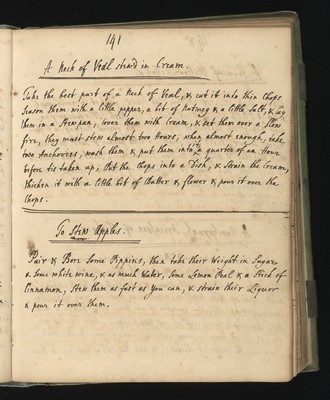 141
A Neck of Veal stew'd in Cream.
Take the best part of a Neck of Veal, & cut it into thin Chops
Season them with a little pepper, a bit of Nutmeg & a little Salt, & lay
them in a Stewpan, cover them with Cream, & set them over a Slow
fire, they must stew almost two Hours; when almost enough, take
two Anchovies, wash them & put them into it a quarter of an Hour
before tis taken up, Put the Chops into a Dish, & strain the Cream,
thicken it with a little bit of Butter & flower & pour it over the
Chops.
To Stew Apples.
Pair & Bore Some Pippins, then take their Weight in Sugar
& Some white wine, & as much Water, Some Lemon Peal & a Stick of
Cinnamon, Stew them as fast as You can, & strain their Liquor
& pour it over them.